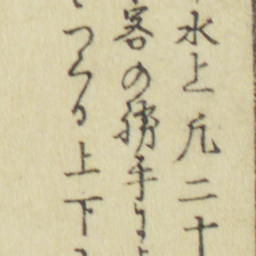 水上凡二十
客の勝手に
つくる上下